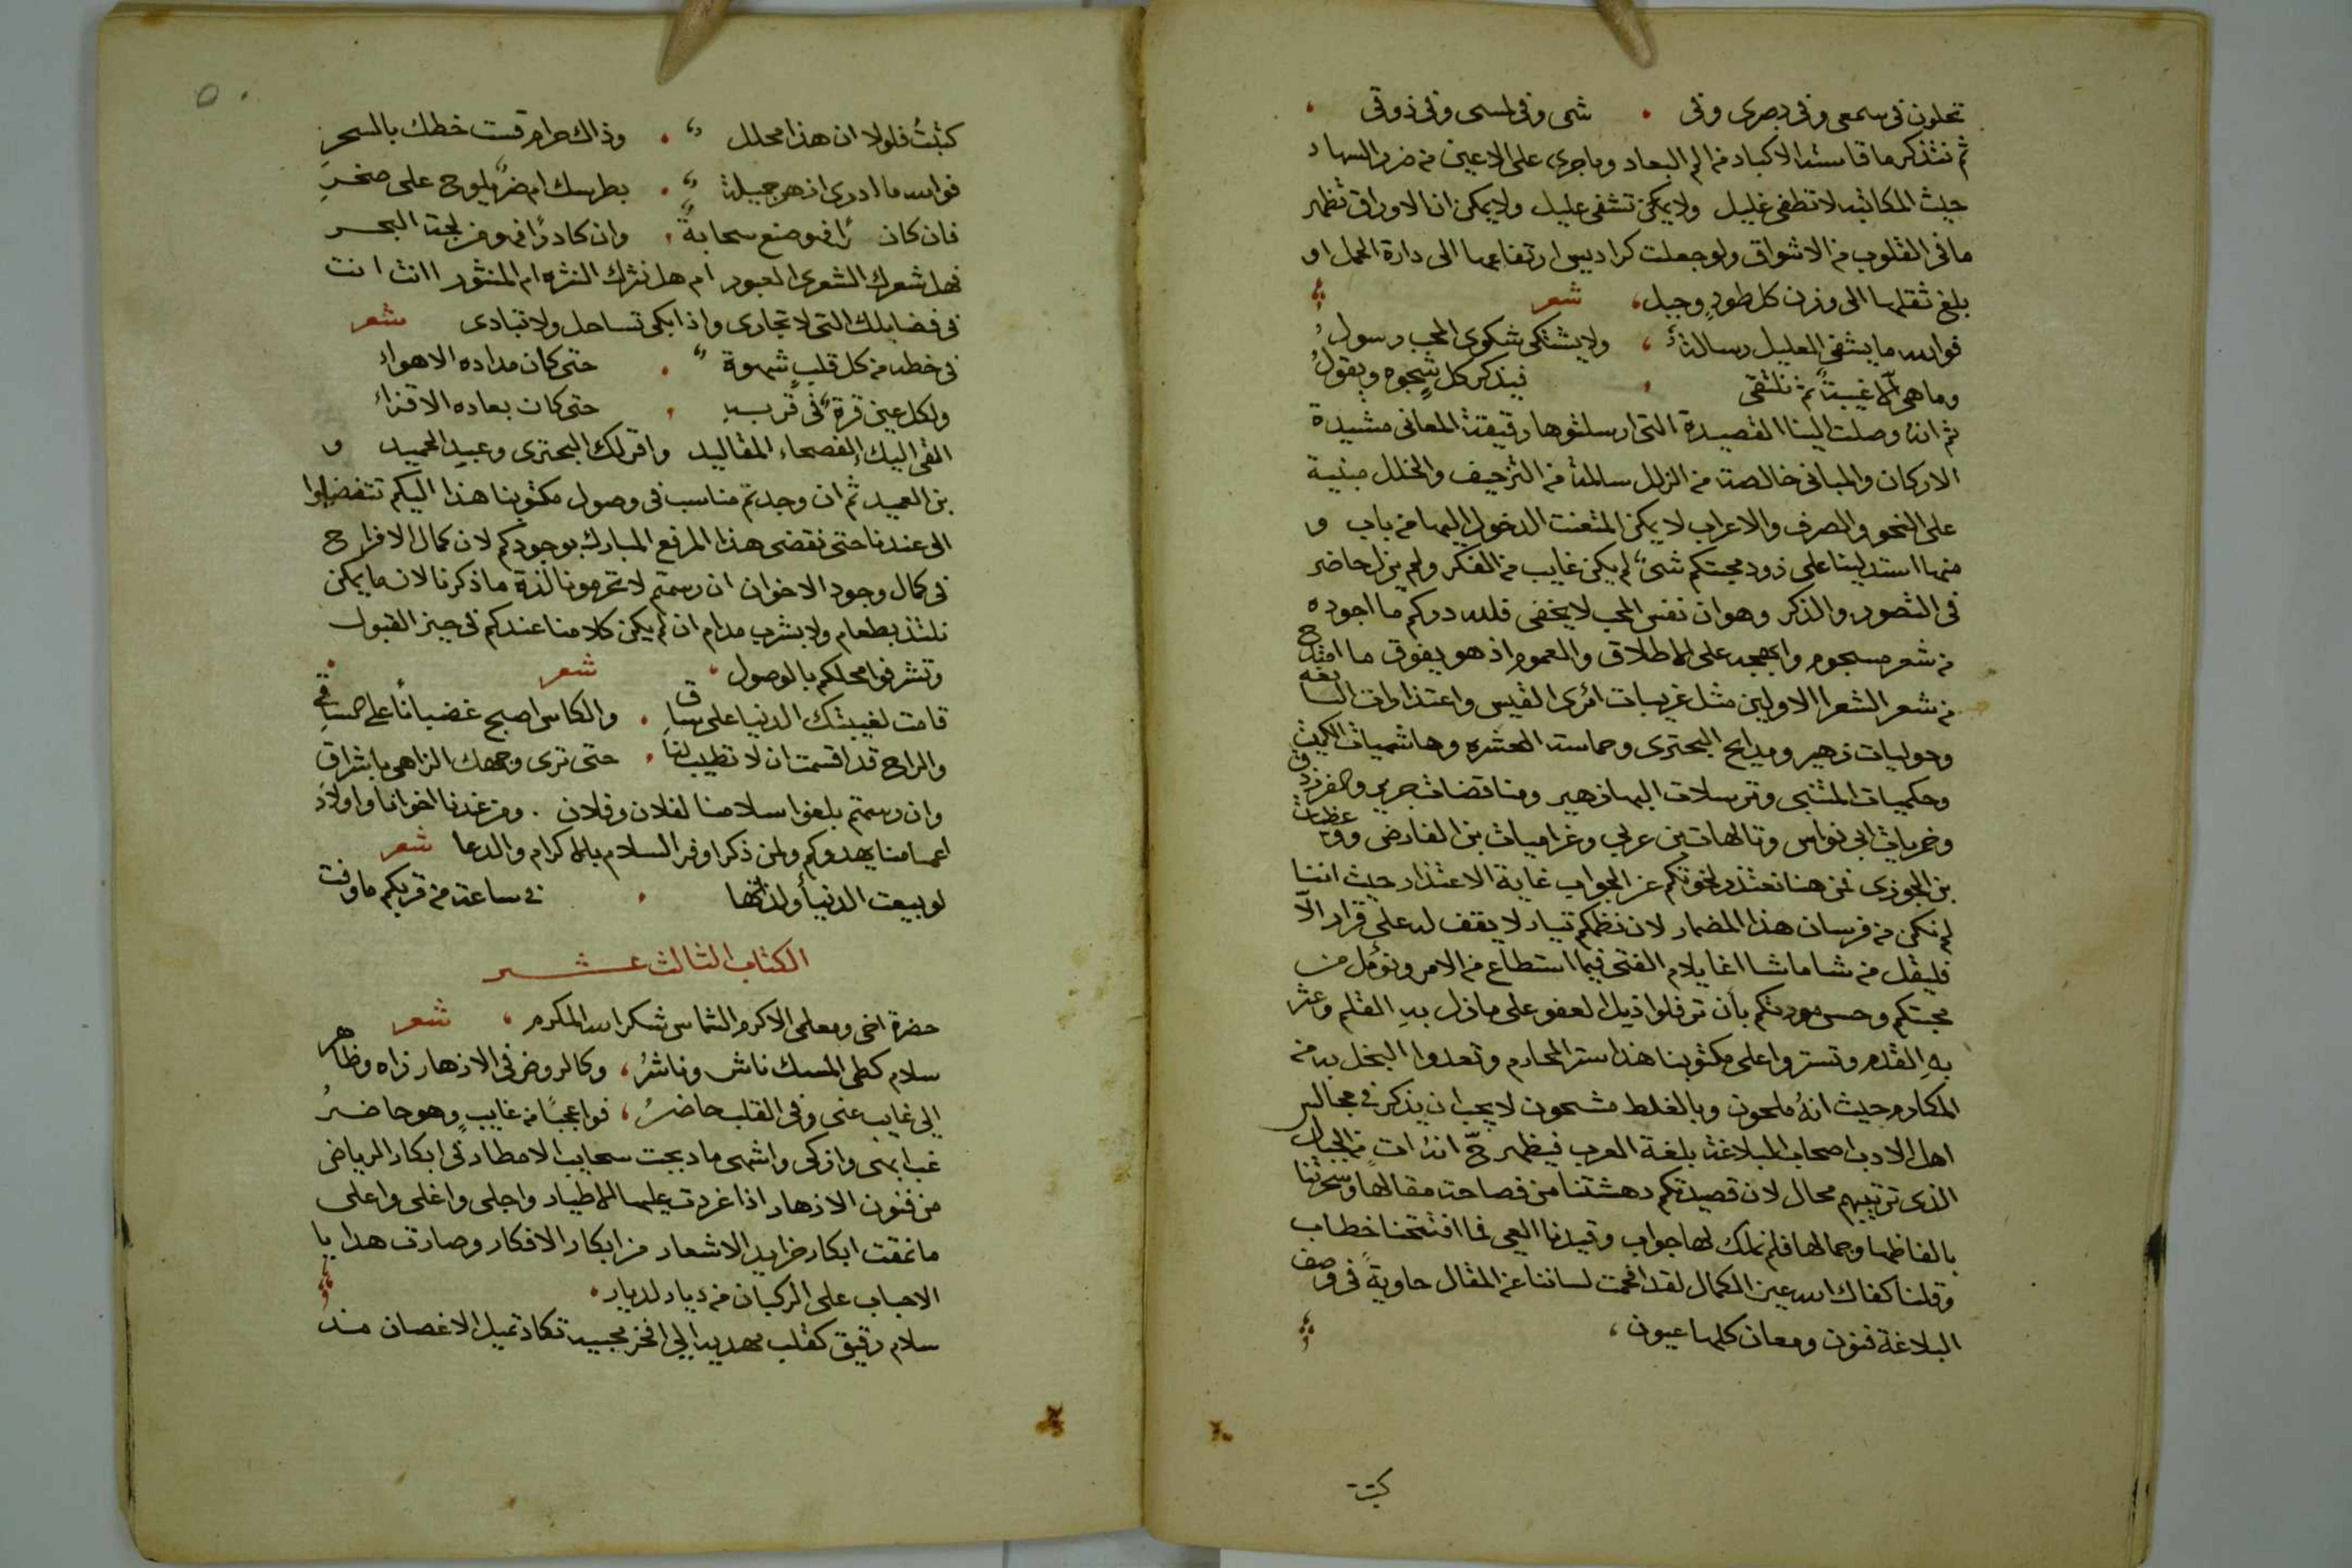 تحلون في سمعي وفي بصري وفي . شمي وفي لمسي وفي ذوقي
ثم نتذكر ما قاسته الاكباد من الم البعاد وما جرى على الاعين من ضر السهاد
حيث المكاتبه لا تطفي غليل ولا يمكن تشفي عليل ولا يمكن ان الاوراق تظهر
ما في القلوب من الاشواق ولو جعلت كراديس ارتفاعها الى دارة الحمل او
بلغ ثقلها الى وزن كل طودٍ وجبل، شعر
فوالله ما يشفي العليل رسالةٌ ، ولا يشتكي شكوى المحب رسولُ
وما هي الّا غيبةٌ ثم نلتقي ، فيذكر كل شجوه ويقولُ
ثم انهُ وصلت الينا القصيدة التي ارسلتوها رقيقة المعاني مشيدة
الاركان والمباني خالصة من الزلل سالمة من التزحيف والخلل مبنية
على النحو والصرف والاعراب لا يمكن المتعنت الدخول اليها من باب و
منها استدلينا على ذود محبتكم شيءٌ لم يكن غايب من الفكر ولم يزل حاضر
في التصور والذكر وهو ان نفس المحب لا يخفى فلله دركم ما اجوده
من شعر مسجوم وابهجه على الاطلاق والعموم اذ هو يفوق ما امتدح
من شعر الشعرا الاولين مثل غريبات امرى القيس واعتذارات النابغه
وحوليات زهير ومدايح البحتري وحماسة العنتره وهاشميات الكميت
وحكميات المتنبي وترسلات البهازهير ومناقضات جرير والفرزدق
وخمريات ابي نواس وتالهات بن عربي وغراميات بن الفارض ووعظيات
بن الجوزى نحن هنا نعتذر لخوتكم عن الجواب غاية الاعتذار حيث اننا
لم نكن من فرسان هذا المضمار لان نظمكم تيار لا يقف له على قرار الّا
فليقل من شا ما شا انما يلام الفتى فيما استطاع من الامر ونؤمل من
محبتكم وحسن مودتكم بأن ترفلوا ذيل العفو على ما زل بهِ القلم وعثر
بهِ القدم وتستروا على مكتوبنا هذا ستر المحارم وتعدوا البخل به من
المكارم حيث انهُ ملحون وبالغلط مشحون لا يجب ان يذكر في مجالس
اهل الادب اصحاب البلاغة بلغة العرب فيظهر حّ انهُ اتٍ من الجبال
الذي ترتيبهم محال لان قصيدتكم دهشتنا من فصاحة مقالها وسحرتنا
بالفاظها وجمالها فلم نملك لها جواب وقيدنا العي فما افتتحنا خطاب
وقلنا كفاك الله عين الكمال لقد افحمت لساننا عن المقال حاويةً في وصف
البلاغة فنون ومعان كلها عيون ،
كتبت
كتبتُ فلولا ان هذا محلل . وذاك حرام قست خطك بالسحرِ
فوالله ما ادري ازهر جميلة . بطرسك ام ضرٌ يلوح على صخرِ
فان كان رًا فهو صنع سحابةٍ ، وان كا درًا فهو من لجة البحر
فهل شعرك الشعرى العبور ام هل نثرك النثره ام المنثور اانت انت
في فضايلك التي لا تجارى واذا بكى تساحل ولا تبادى شعر
في خطه من كل قلبٍ شهوة . حتى كان مداده الاهواءُ
ولكل عين قرةٌ في قربهِ ، حتى كان بعاده الاقذاءُ
القى اليك الفصحاء المقاليد واقر لك البحتري وعبيد الحميد و
بن العميد ثم ان وجدتم مناسب في وصول مكتوبنا هذا اليكم تتفضلوا
الى عندنا حتى نقضي هذا المرفع المبارك بوجودكم لان كمال الافراح
في كمال وجود الاخوان ان رسمتم لا تحرمونا لذة ما ذكرنا لان ما يمكن
نلتذ بطعام ولا بشرب مدام ان لم يكن كلامنا عندكم في حيز القبول
وتشرفوا محلكم بالوصول ، شعر
قامت لغيبتك الدنيا على ساق . والكاس اصبح غضبانًا على الساقي
والراح قد اقسمت ان لا تطيب لنا . حتى ترى وجهك الزاهي باشراق
وان رسمتم بلغوا سلامنا لفلان وفلان . ومن عندنا اخوانا واولاد
اعمامنا يهدوكم ولمن ذكر اوفر السلام بالاكرام والدعا شعر
لو بيعت الدنيا ولذاتها ، في ساعة من قربكم ما وفت
الكتاب الثالث عشر
حضرة اخي ومعلمي الاكرم الشماس شكرالله المكرم ، شعر
سلام كطي المسك ناش وناشرُ ، وكالروض في الازهار زاه وظاهر
الى غايب عني وفي القلب حاضرُ ، فوا عجبًا من غايبٍ وهو حاضرُ
غب ابهى وازكى واشهى ما دبجت سحايب الامطار في ابكار الرياض
من فنون الازهار اذا غردت عليها الاطيار واجلى واغلى واعلى
ما نمقت ابكار خرايد الاشعار من ابكار الافكار وصارت هدايا
الاحباب على الركبان من ديار لديار .
سلام رقيق كقلب مهديه الى افخر مجيبه تكاد تميل الاغصان منه